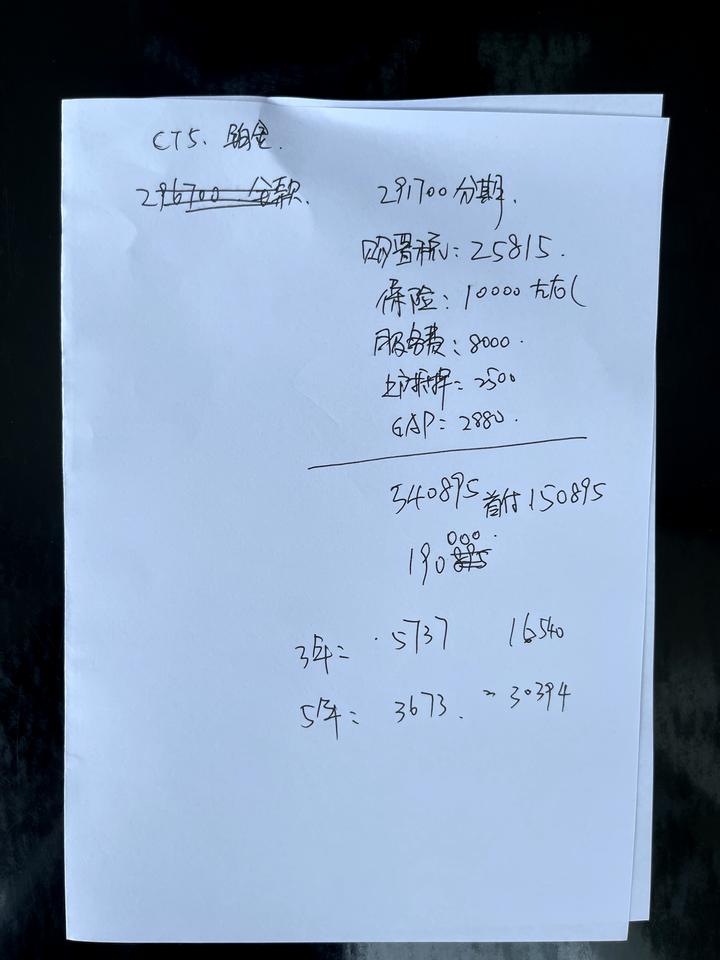 CT5、铂金.
296700 全款. 291700 分期.
购置税: 25815.
保险: 10000 左右(
服务费: 8000.
上户
: 2500
GAP: 2880.
340895 首付 150895
190 000.
3年= 5737 16540
5年= 3673. 30394